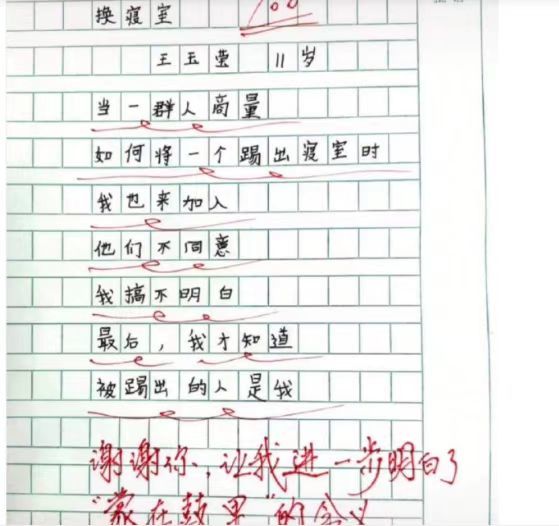 换寝室
100
王玉莹 11岁
当一群人商量
如何将一个踢出寝室时
我也来加入
他们不同意
我搞不明白
最后，我才知道
被踢出的人是我
谢谢你，让我进一步明白了
"蒙在鼓里"的含义